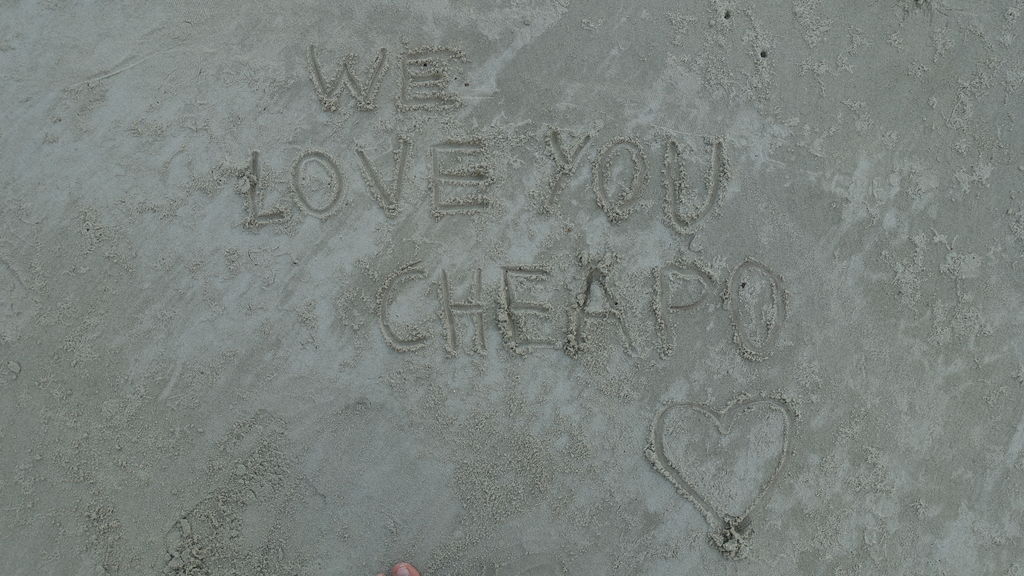 WE
LOVE YOU
CHEAPO